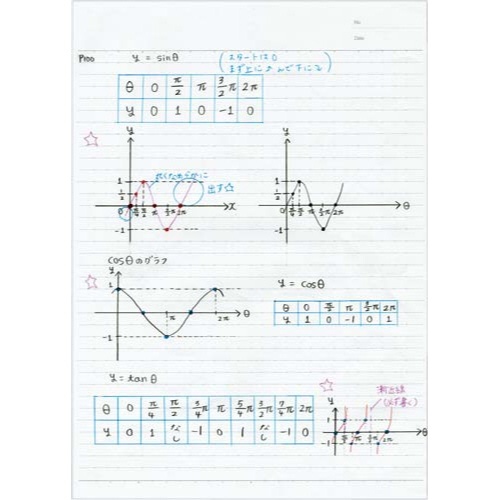 No.
Date
P100 y = sinθ (スタートは0
まず上にすすんで下にる)
θ 0 π/2 π 3/2π 2π
y 0 1 0 -1 0
y
1
1/2
0 π/6 π/2 π 3/2π 2π x
-1
出す☆
y
1
1/2
0 π/6 π/2 π 3/2π 2π θ
-1
cosθのグラフ
y
1
π 2π θ
-1
y = cosθ
θ 0 π/2 π 3/2π 2π
y 1 0 -1 0 1
y = tanθ
θ 0 π/4 π/2 3/4π π 5/4π 3/2π 7/4π 2π
y 0 1 なし -1 0 1 なし -1 0
漸近線
(必ず書く)
y
1
π/2 π 3/2π 2π θ
-1